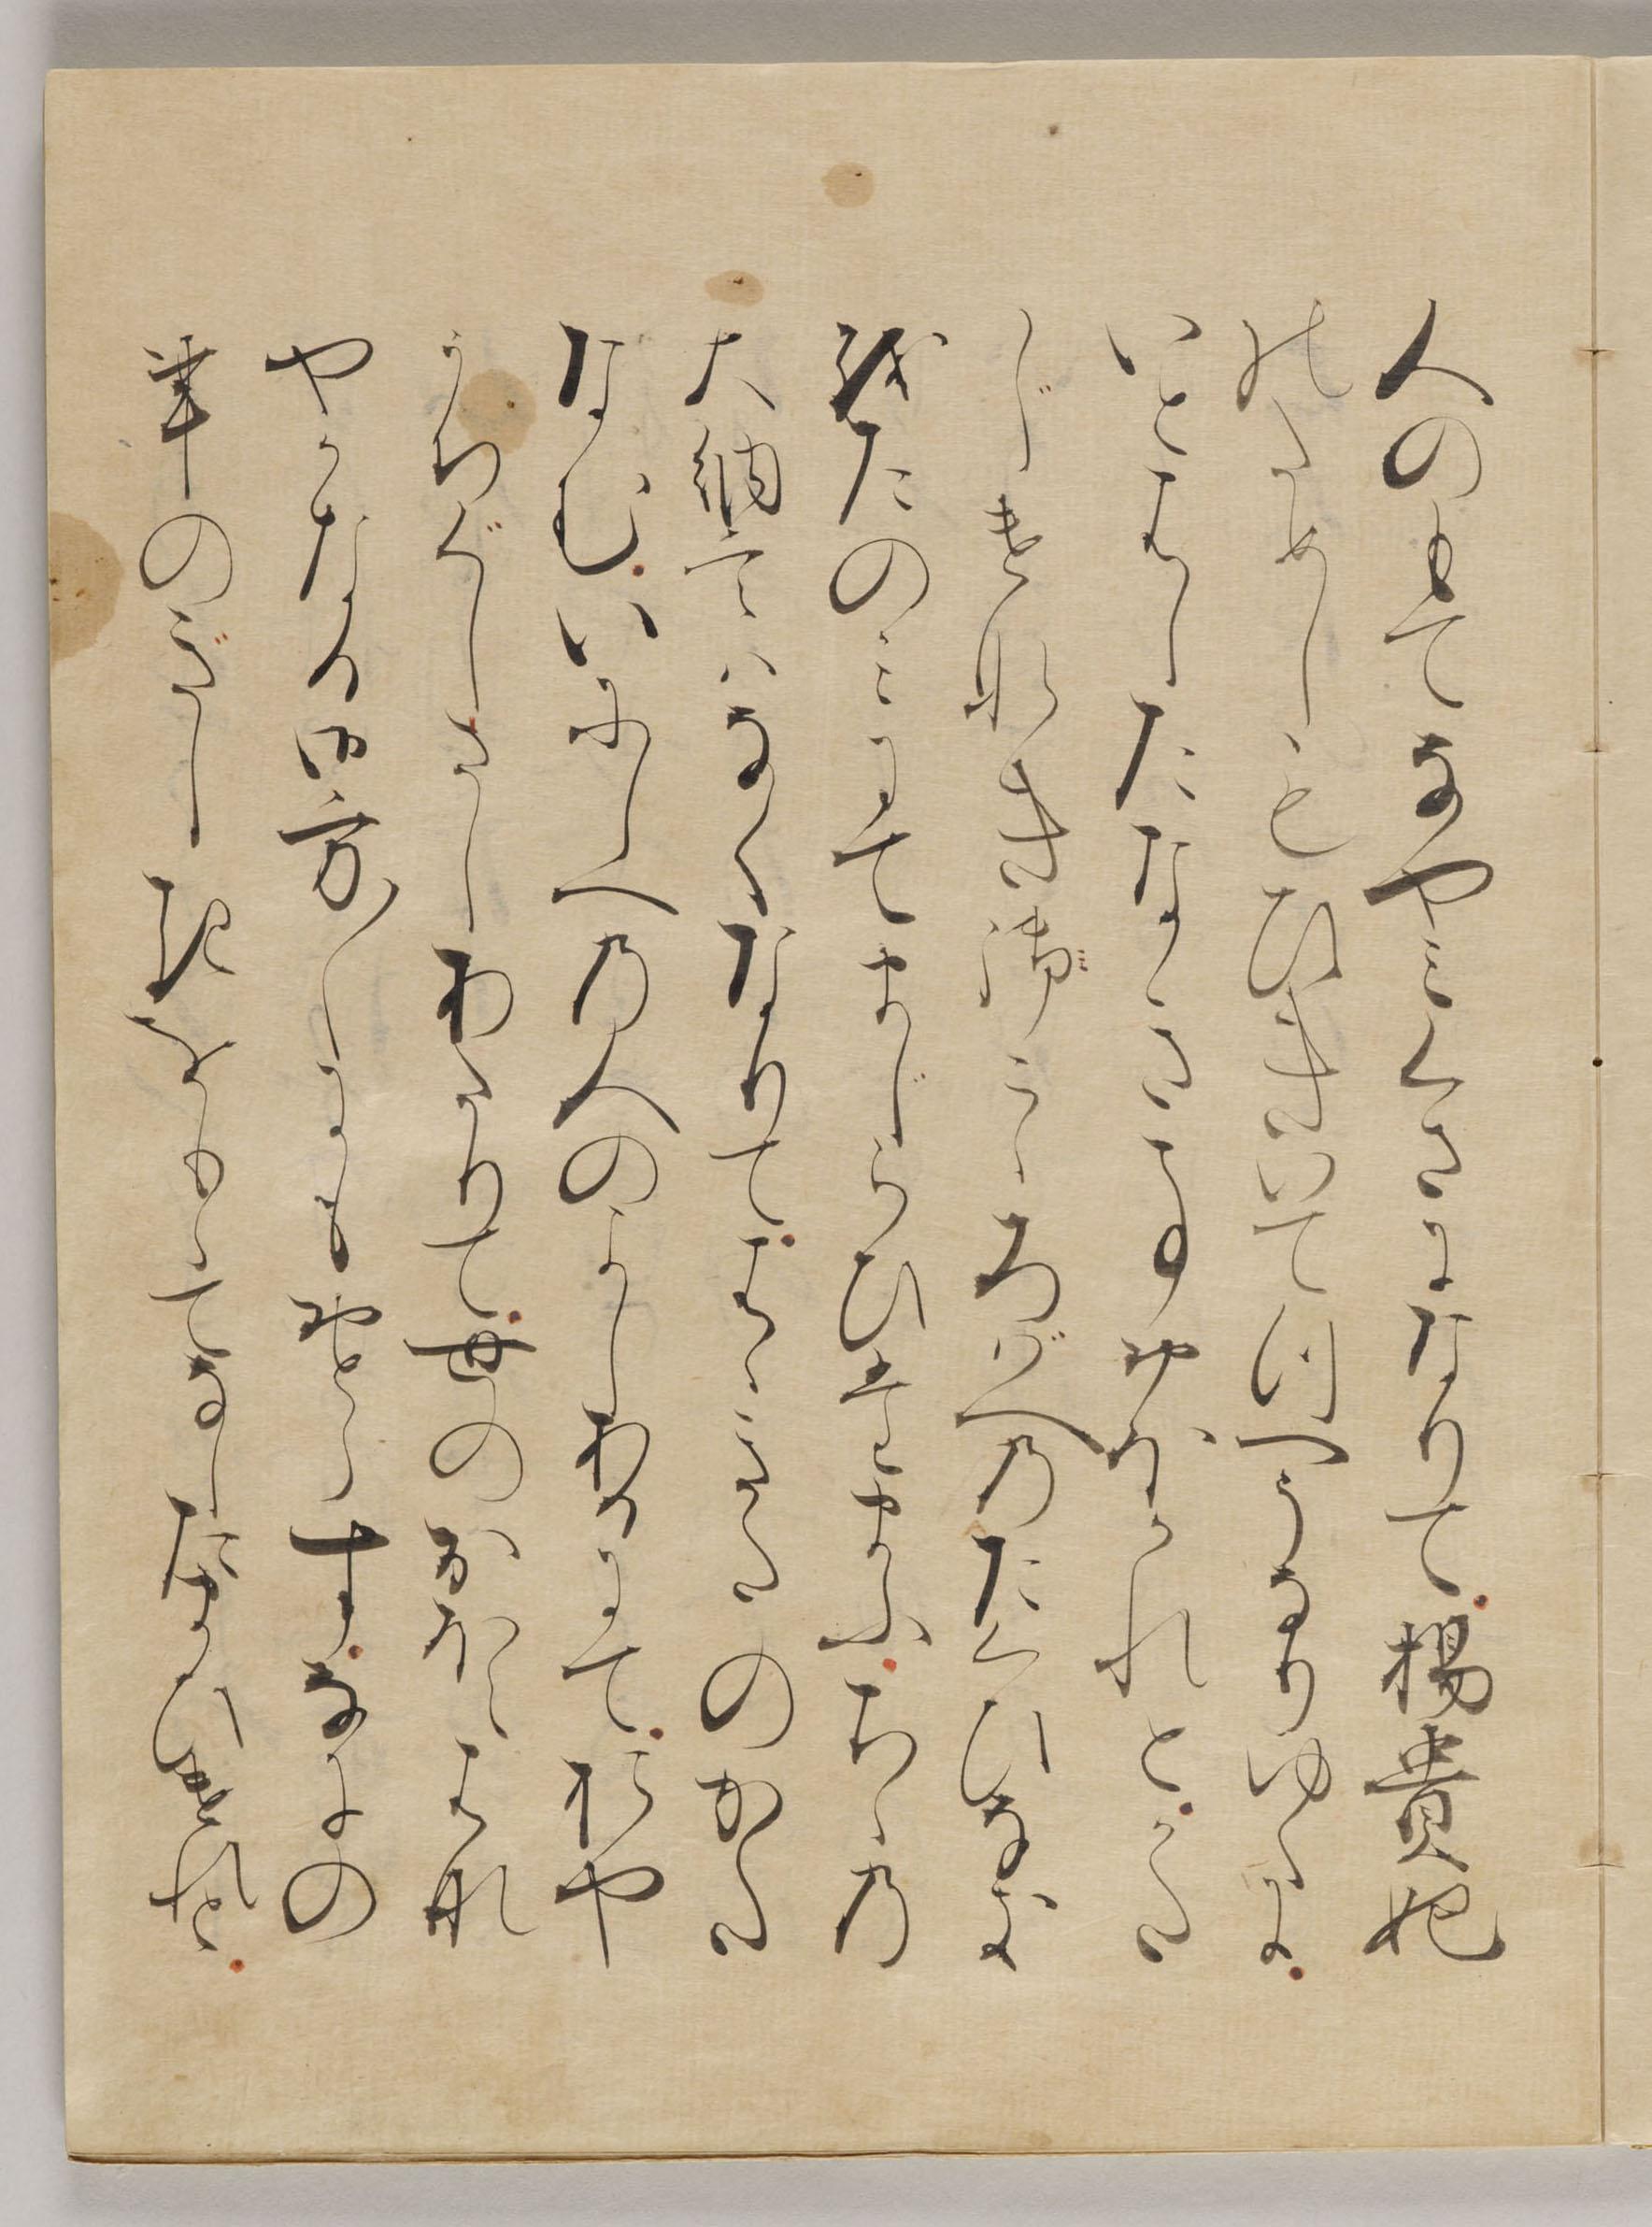 人のもてなやみくさになりて楊貴妃
のためしもひきいてつへうなりゆくに
いとはしたなきことおほかれとかた
じけなき御こゝろばへのたくひなき
をたのみにてまじらひたまふちゝの
大納言はなくなりてはゝきたのかた
なむいにしへの人のよしあるにておや
うちぐしさしあたりて世のおほえはな
やかなる御方〱にもおとらすなにの
事のぎしきをもゝてなしたまひけれと